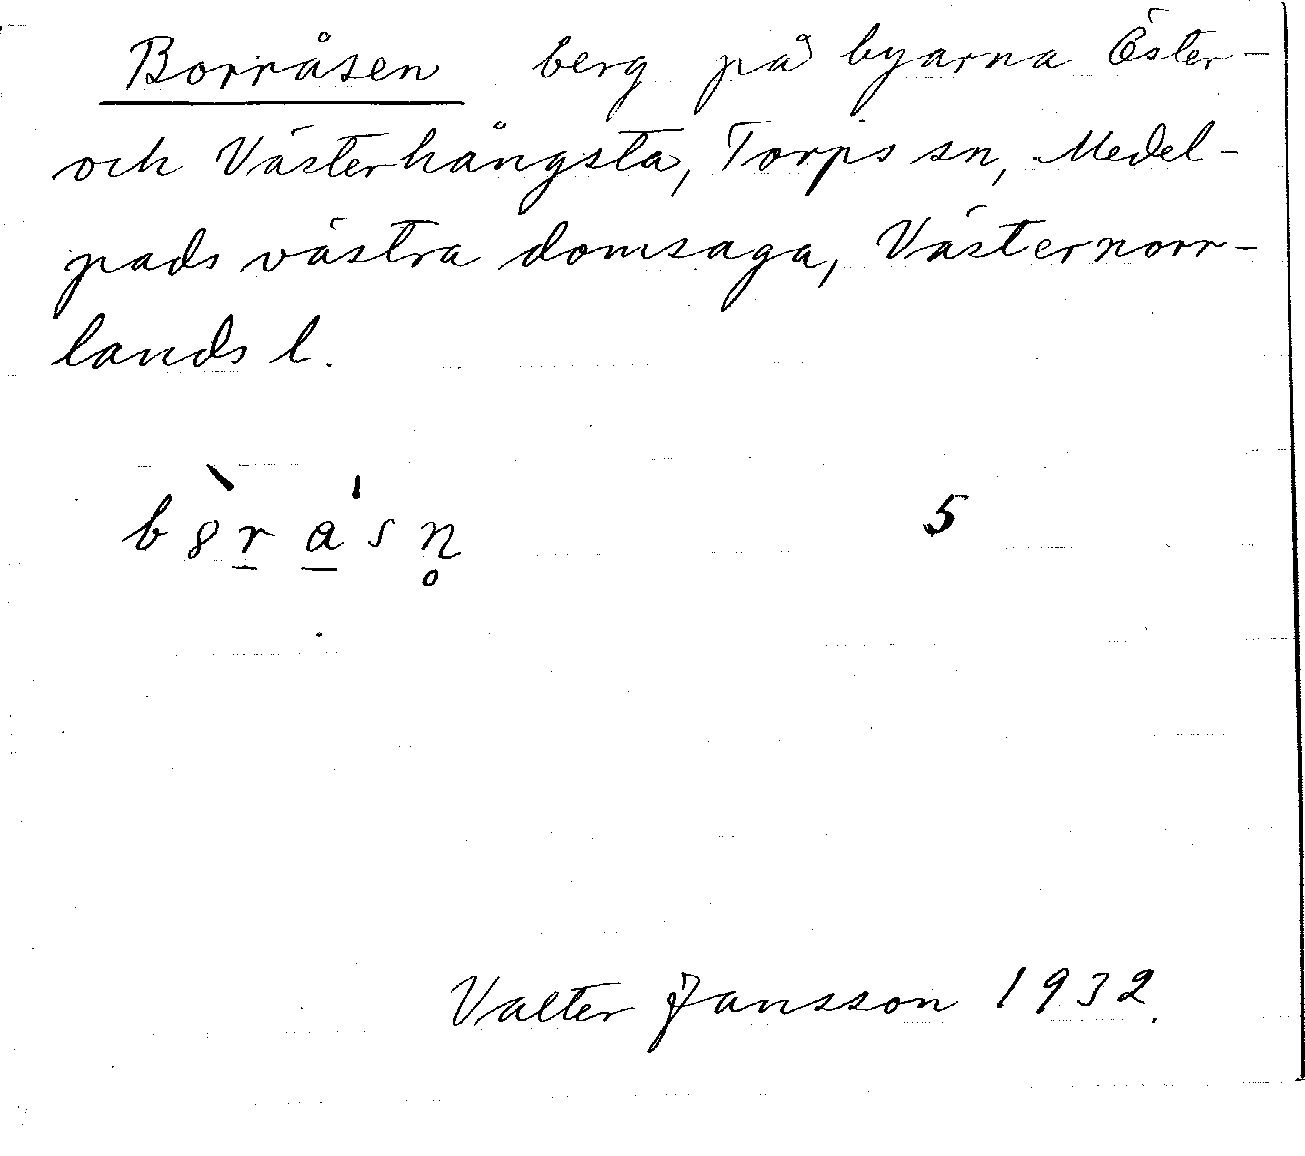 Borråsen berg på byarna Öster-
och Västerhångsta, Torps sn, Medel-
pads västra domsaga, Västernorr-
lands l.
b8̀r̲a̲̍sn̥ 5
Valter Jansson 1932.